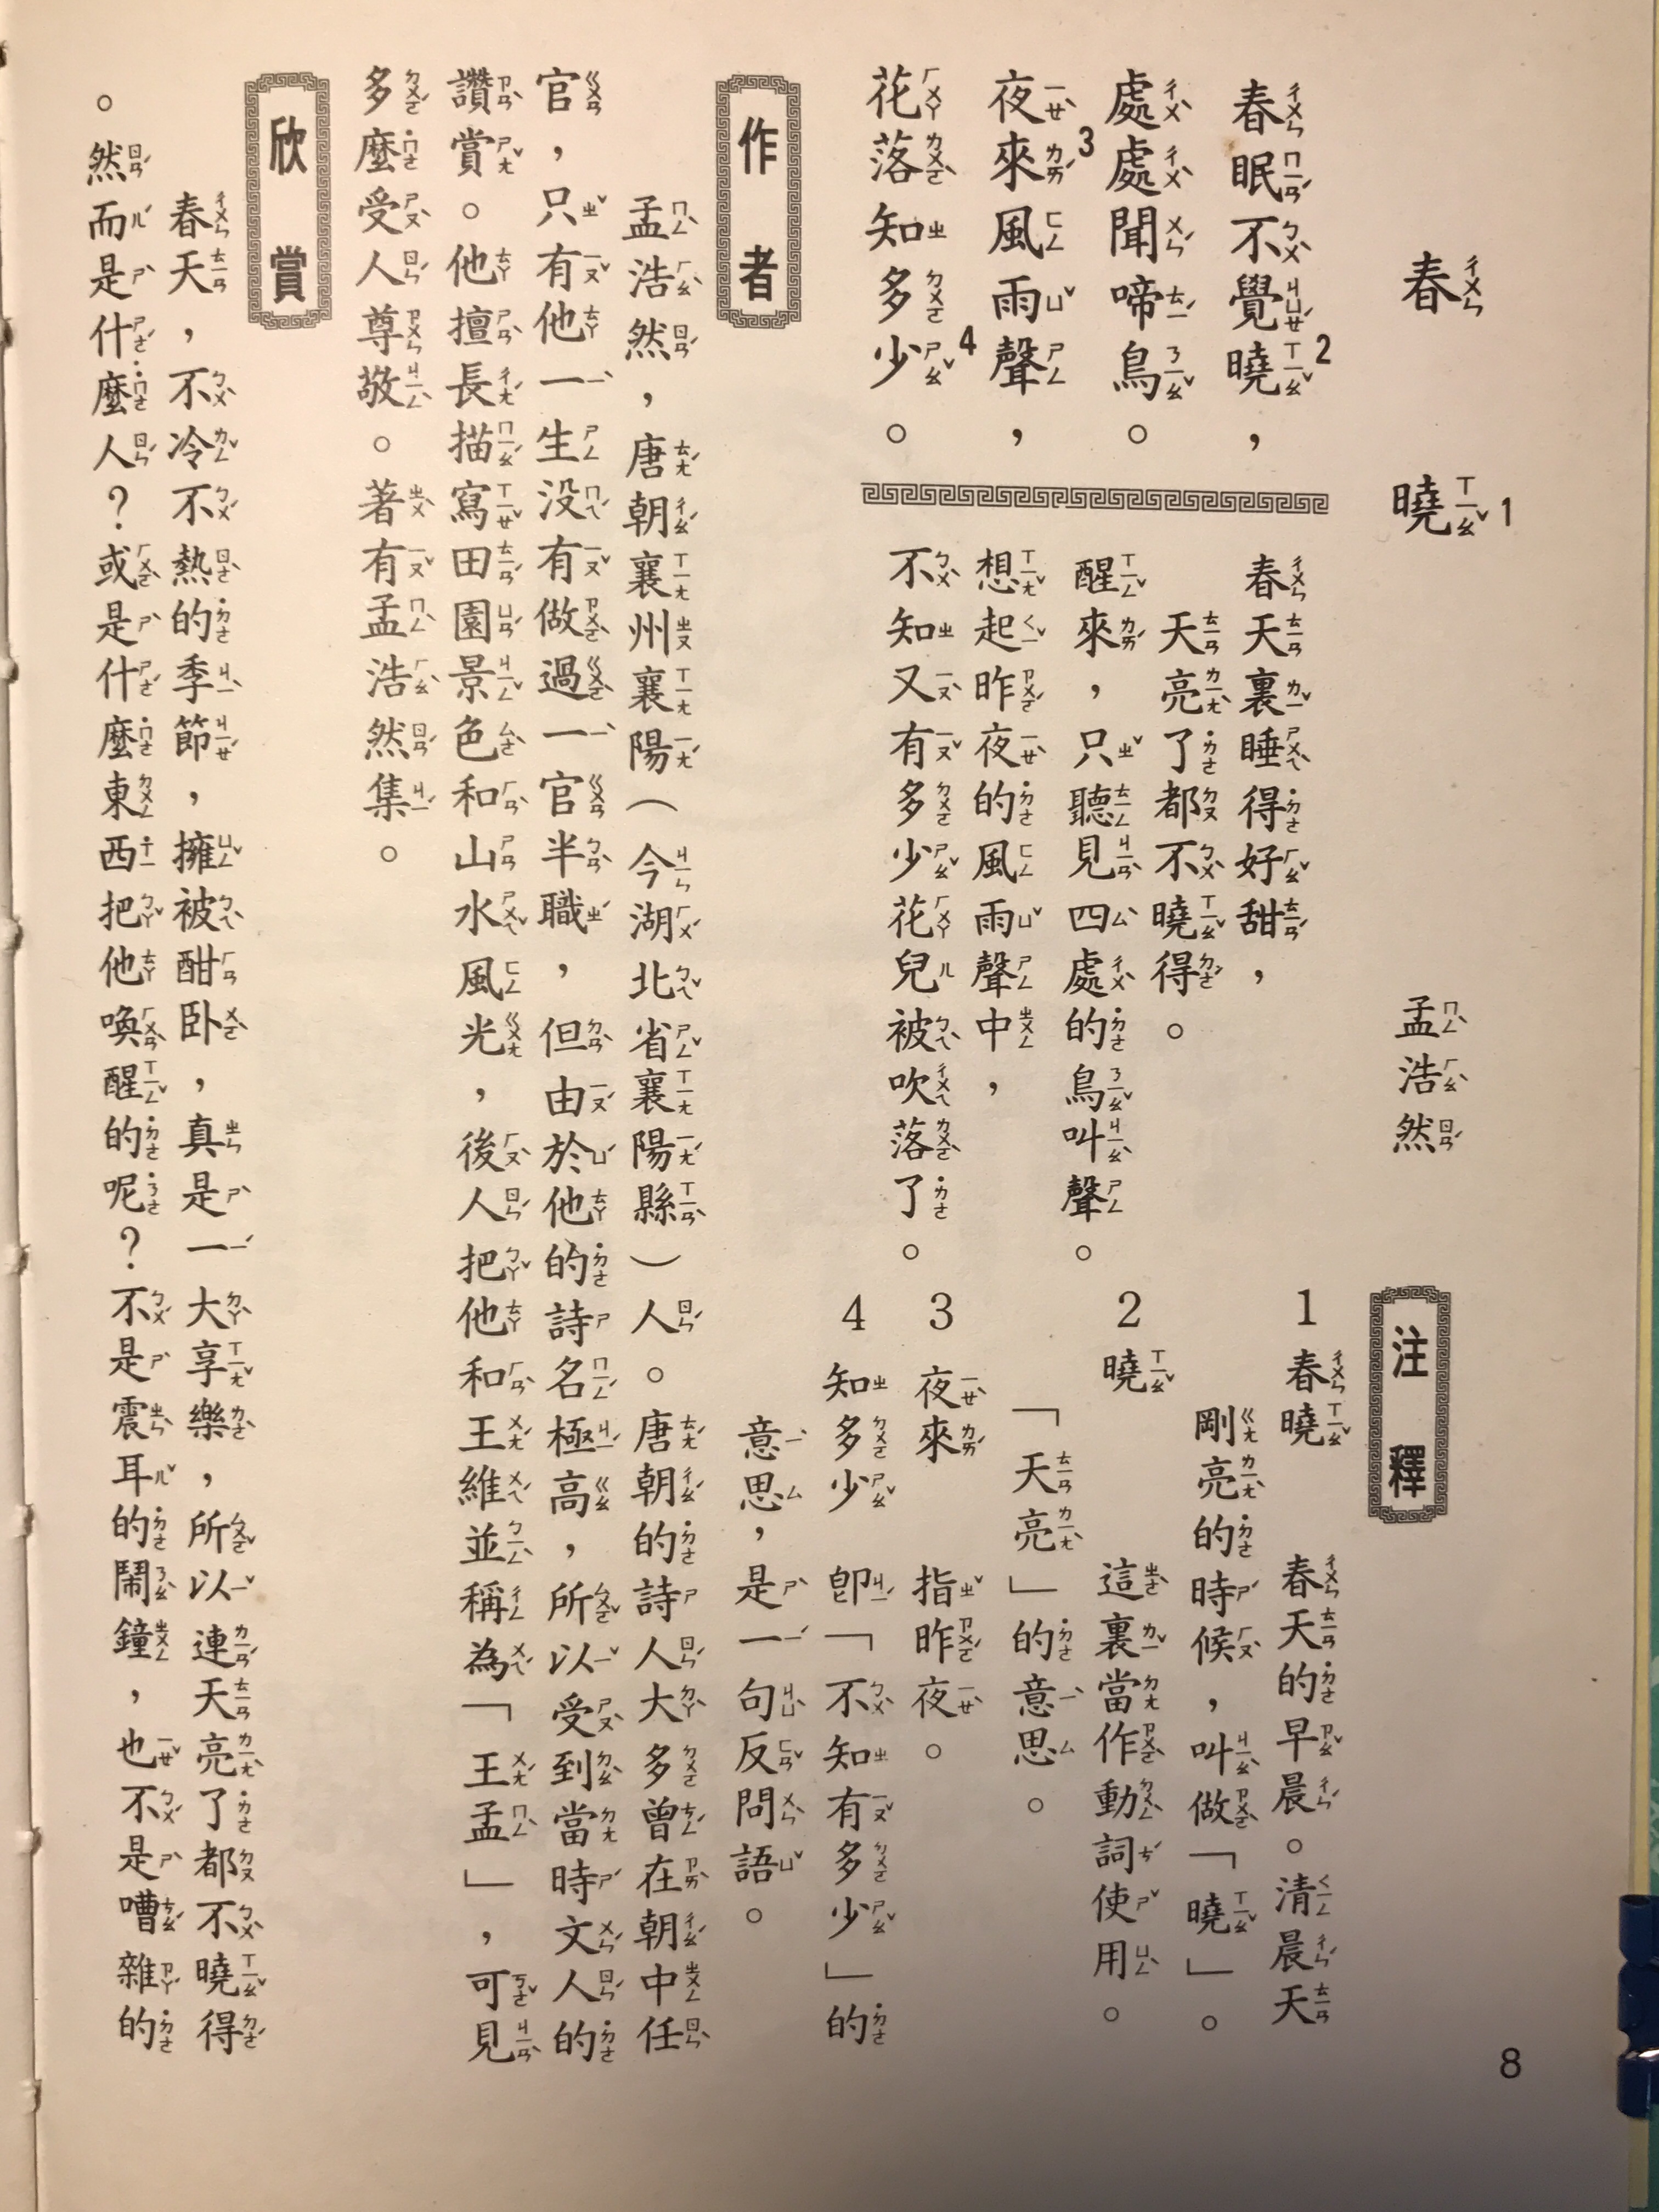 春曉1
孟浩然
春眠不覺曉2，
處處聞啼鳥。
夜來3風雨聲，
花落知多少4。
春天裏睡得好甜，
天亮了都不曉得。
醒來，只聽見四處的鳥叫聲。
想起昨夜的風雨聲中，
不知又有多少花兒被吹落了。
注釋
1 春曉 春天的早晨。清晨天
剛亮的時候，叫做「曉」。
2 曉 這裏當作動詞使用。
「天亮」的意思。
3 夜來 指昨夜。
4 知多少 卽「不知有多少」的
意思，是一句反問語。
作者
孟浩然，唐朝襄州襄陽（今湖北省襄陽縣）人。唐朝的詩人大多曾在朝中任
官，只有他一生没有做過一官半職，但由於他的詩名極高，所以受到當時文人的
讚賞。他擅長描寫田園景色和山水風光，後人把他和王維並稱為「王孟」，可見
多麼受人尊敬。著有孟浩然集。
欣賞
春天，不冷不熱的季節，擁被酣卧，真是一大享樂，所以連天亮了都不曉得
。然而是什麼人？或是什麼東西把他喚醒的呢？不是震耳的鬧鐘，也不是嘈雜的
8